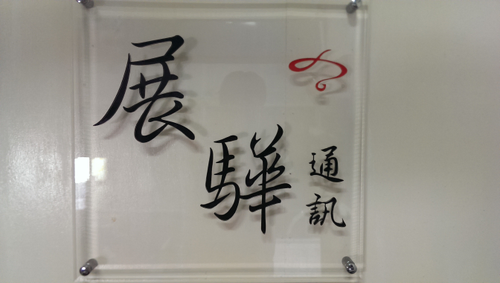 展
驊
通訊